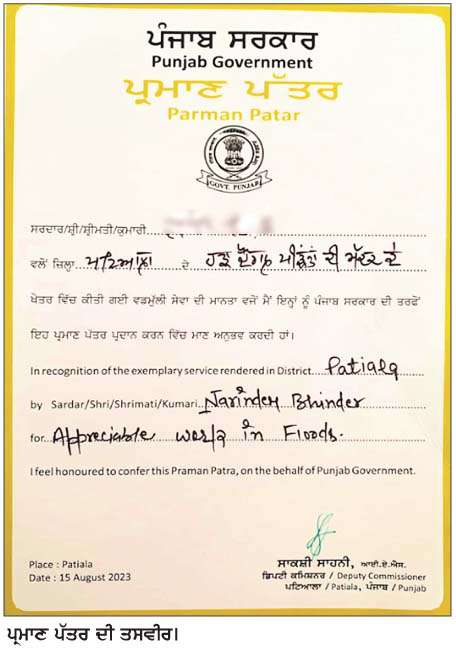 ਪੰਜਾਬ ਸਰਕਾਰ
Punjab Government
ਪ੍ਰਮਾਣ ਪੱਤਰ
Parman Patar
GOVT. PUNJAB
ਸਰਦਾਰ/ਸ਼੍ਰੀ/ਸ਼੍ਰੀਮਤੀ/ਕੁਮਾਰੀ
ਵਲੋਂ ਜ਼ਿਲ੍ਹਾ ਪਟਿਆਲਾ ਦੇ ਹੜ੍ਹ ਦੌਰਾਨ ਪੀੜਤਾਂ ਦੀ ਮੱਦਦ ਦੇ
ਖੇਤਰ ਵਿੱਚ ਕੀਤੀ ਗਈ ਵਡਮੁੱਲੀ ਸੇਵਾ ਦੀ ਮਾਨਤਾ ਵਜੋਂ ਮੈਂ ਇਨ੍ਹਾਂ ਨੂੰ ਪੰਜਾਬ ਸਰਕਾਰ ਦੀ ਤਰਫੋਂ
ਇਹ ਪ੍ਰਮਾਣ ਪੱਤਰ ਪ੍ਰਦਾਨ ਕਰਨ ਵਿੱਚ ਮਾਣ ਅਨੁਭਵ ਕਰਦੀ ਹਾਂ।
In recognition of the exemplary service rendered in District Patiala
by Sardar/Shri/Shrimati/Kumari Narinder Bhinder
for Appreciable work in Floods.
I feel honoured to confer this Praman Patra, on the behalf of Punjab Government.
ਸਾਕਸ਼ੀ ਸਾਹਨੀ, ਆਈ.ਏ.ਐਸ.
Place : Patiala
ਡਿਪਟੀ ਕਮਿਸ਼ਨਰ / Deputy Commissioner
Date : 15 August 2023
ਪਟਿਆਲਾ / Patiala, ਪੰਜਾਬ / Punjab
ਪ੍ਰਮਾਣ ਪੱਤਰ ਦੀ ਤਸਵੀਰ।